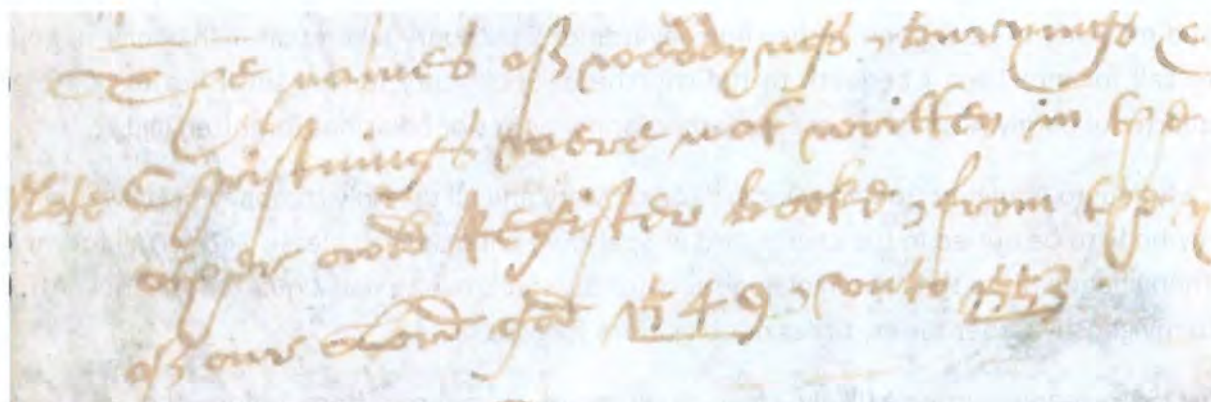 The names of weddyngs, buryings
Note Christnings were not written in the
other owld Register booke, from the
of our Lord god 1549, vnto 1553